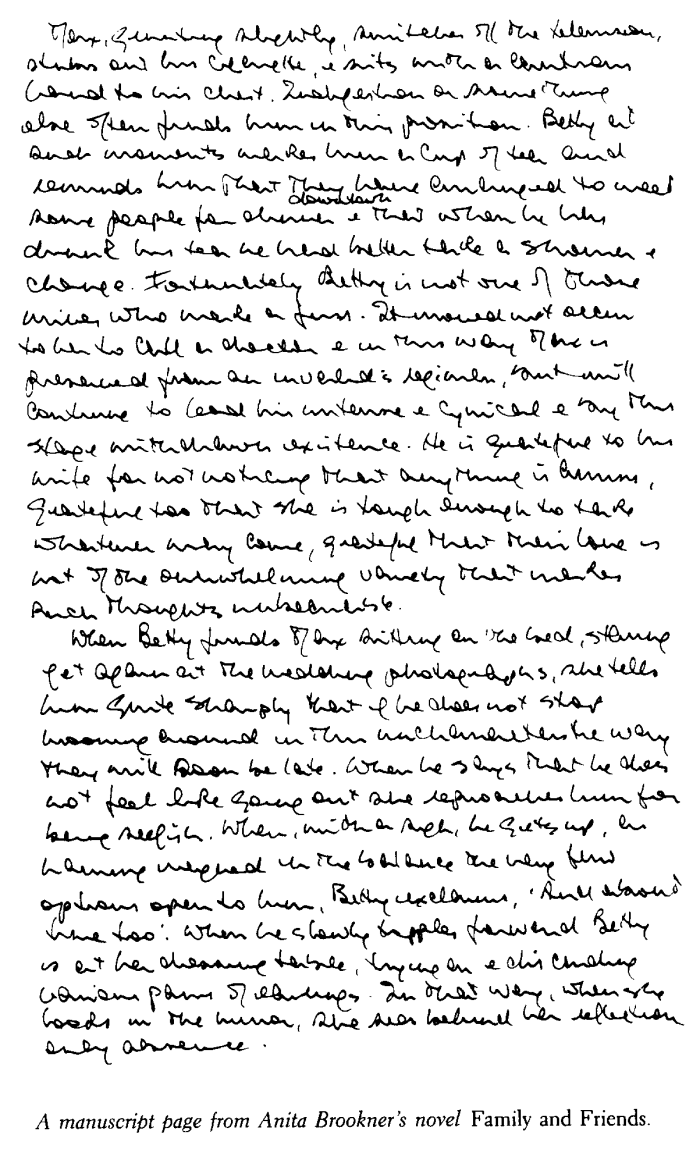 Max, grunting slightly, switches off the television,
stubs out his cigarette, & sits with a cautious
hand to his chest. Indigestion or something
else often finds him in this position. Betty at
such moments makes him a cup of tea and
reminds him that they have arranged to meet
downtown
some people for dinner & that when he has
drunk his tea he had better take a shower &
change. Fortunately Betty is not one of those
wives who make a fuss. It would not occur
to her to call a doctor & in this way Max is
preserved from an invalid's regimen, but will
continue to lead his intense & cynical & by this
stage withdrawn existence. He is grateful to his
wife for not noticing that anything is amiss,
grateful too that she is tough enough to take
whatever may come, grateful that their love is
not of the overwhelming variety that makes
such thoughts unbearable.
When Betty finds Max sitting on the bed, staring
yet again at the wedding photographs, she tells
him quite sharply that if he does not stop
mooning around in this uncharacteristic way
they will soon be late. When he says that he does
not feel like going out she reproaches him for
being selfish. When, with a sigh, he gets up,
having weighed in the balance the very few
options open to him, Betty exclaims, 'And about
time too'. When he slowly topples forward Betty
is at her dressing table, trying on & discarding
various pairs of earrings. In that way, when she
looks in the mirror, she sees behind her reflection
only absence.
A manuscript page from Anita Brookner's novel Family and Friends.